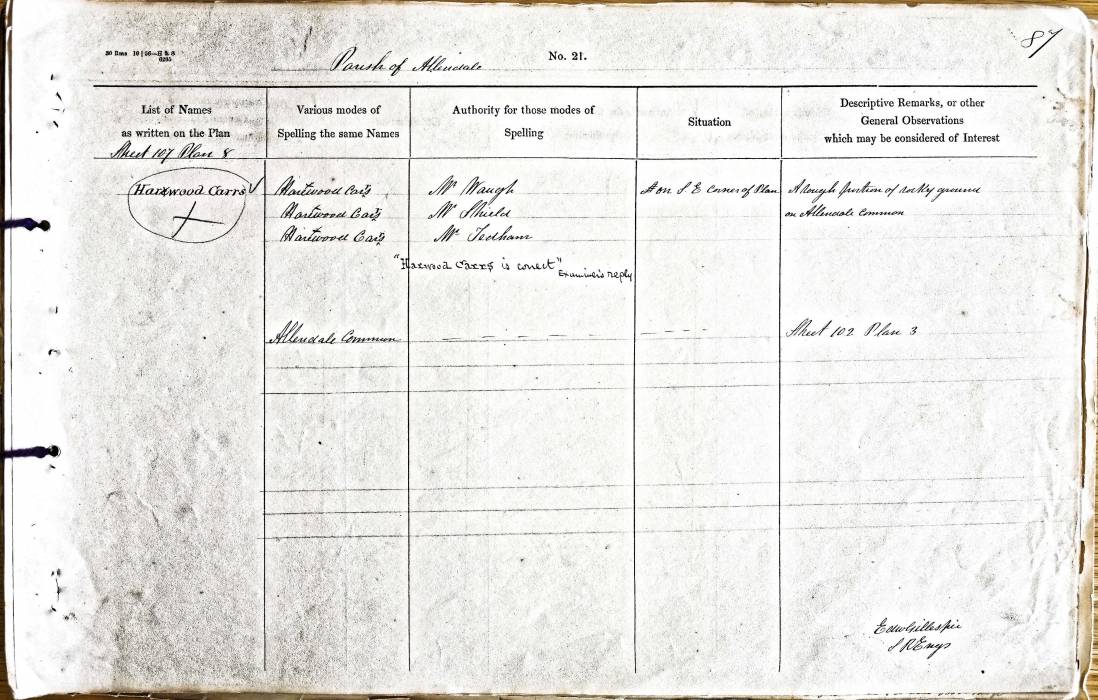 87
30 Dms 10 | 56—H & S
0205
Parish of Allendale
No. 21.
List of Names
as written on the Plan
Various modes of
Spelling the same Names
Authority for those modes of
Spelling
Situation
Descriptive Remarks, or other
General Observations
which may be considered of Interest
Sheet 107 Plan 8
Harwood Carrs Hartwood Cars Mr Waugh on S E Corner of Plan A rough portion of rocky ground
Hartwood Cars Mr Shield on Allendale Common
Hartwood Cars Mr Tedham
"Harwood Carrs is correct" Examiner's reply
Allendale Common — — — — — — — Sheet 102 Plan 3
Edw Gillespie
S R Engs